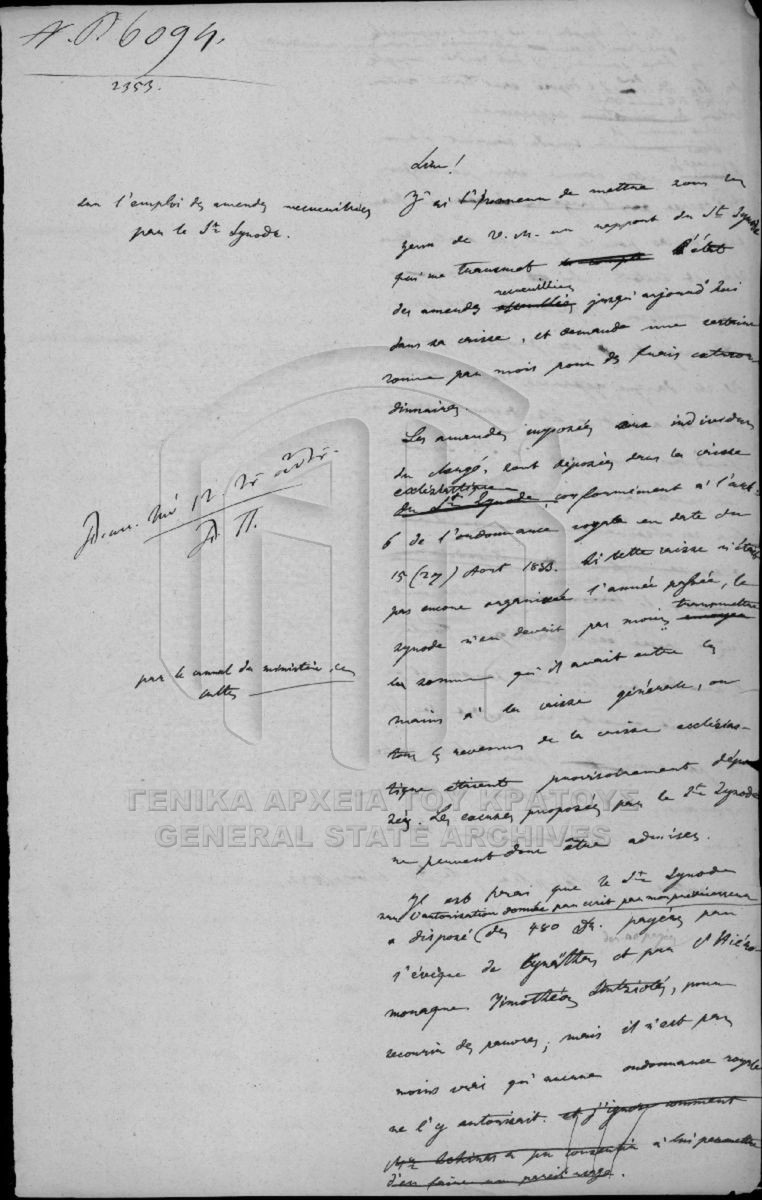 N. P. 6094.
2353.
sur l'emploi des amendes recueuillies
par le St. Synode.
Sire!
J'ai l'honneur de mettre sous les
yeux de V. M. un rapport du St. Synode
qui me transmet le compte l'état
des amendes recueuillies jusqu'aujourd'hui
dans sa caisse, et demande une certaine
somme par mois pour des frais extraor-
dinaires.
Les amendes imposées aux individus
du clergé, sont déposées dans la caisse
ecclésiastique
du St. Synode, conformément à l'art.
6 de l'ordonnance royale en date du
15 (27) Aout 1833. Si cette caisse n'était
pas encore organisée l'année passée, le
synode n'en devait pas moins transmettre
par le canal du ministère des
cultes
la somme qu'il avait entre les
mains à la caisse générale, ou
tous les revenus de la caisse ecclésias-
tique étaient provisoirement dépo-
sés. Les proposées par le St. Synode
ne peuvent donc être admises.
Il est vrai que le St. Synode
sans l'autorisation donnée par écrit par mon prédécesseur
a disposé des 480 Dr. payées par
l'évêque de et par l'Hiéro-
monaque Timothéos, pour
secourir des pauvres, mais il n'est pas
moins vrai qu'aucune ordonnance royale
ne l'y autorisait. et j'ignore comment
a pu consentir à lui permettre
d'en faire un pareil usage.
ΓΕΝΙΚΑ ΑΡΧΕΙΑ ΤΟΥ ΚΡΑΤΟΥΣ
GENERAL STATE ARCHIVES